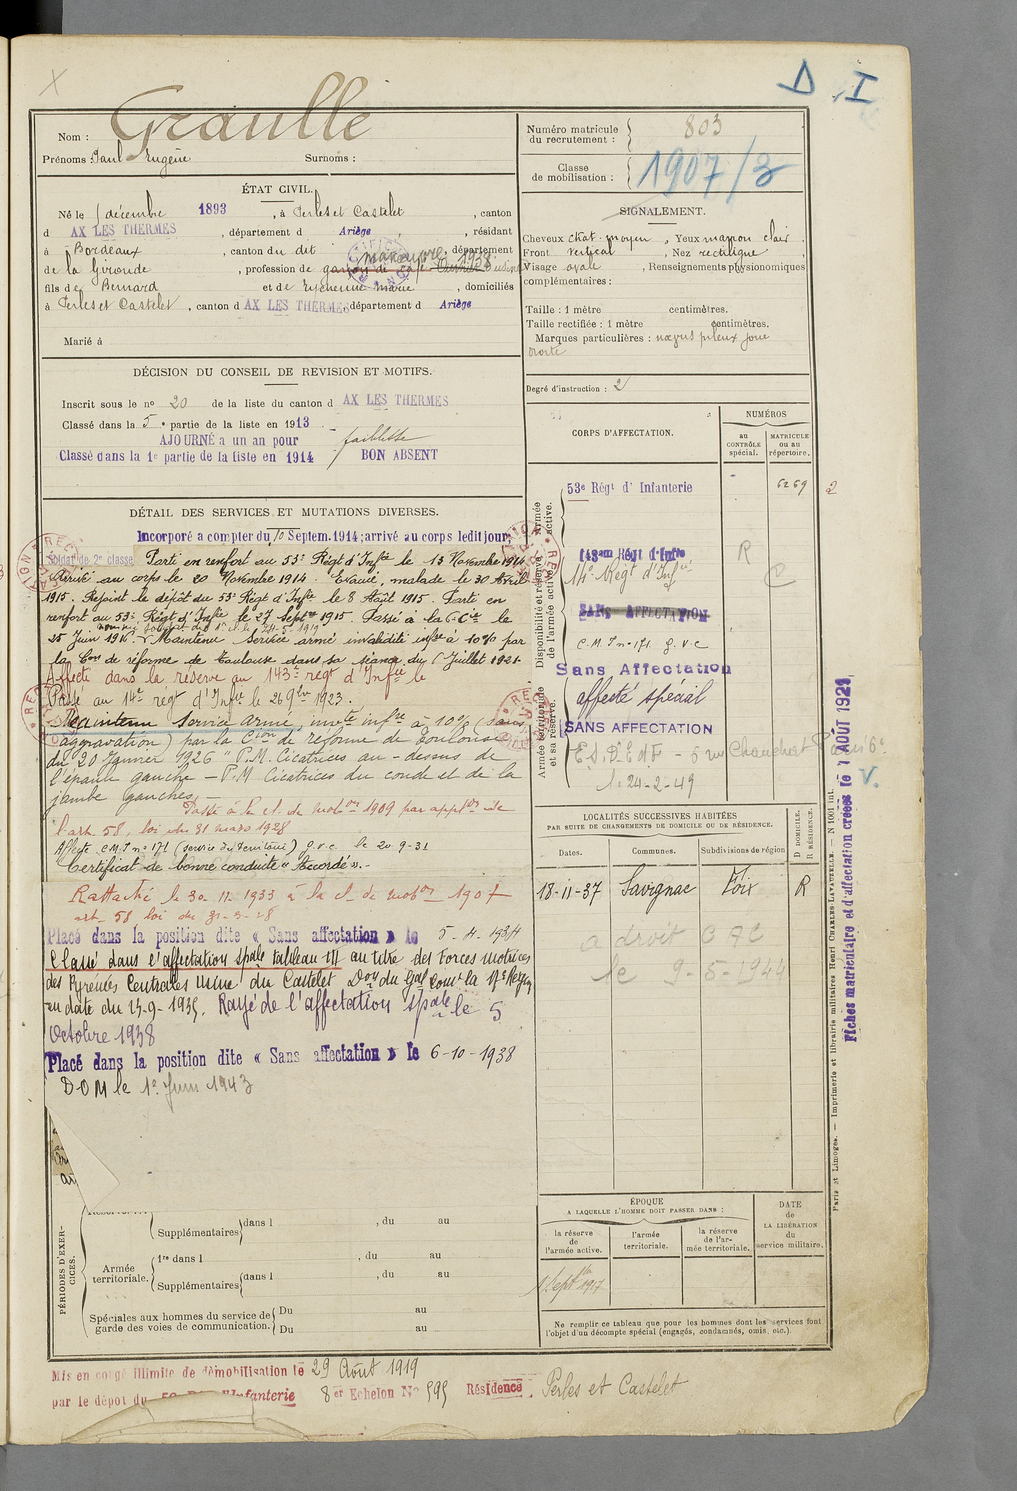 D I
Nom : Graulle
Prénoms Paul Eugène Surnoms :
ÉTAT CIVIL.
Né le 1 décembre 1893, à Perles et Castelet, canton
d AX LES THERMES, département d Ariège, résidant
à Bordeaux, canton du dit, département
de la Gironde, profession de garçon de café manœuvre 1928
fils de Bernard et de marie, domiciliés
à Perles et Castelet, canton d AX LES THERMES département d Ariège
Marié à
DÉCISION DU CONSEIL DE REVISION ET MOTIFS.
Inscrit sous le no 20 de la liste du canton d AX LES THERMES
Classé dans la 5e partie de la liste en 1913
AJOURNÉ a un an pour faiblesse
Classé dans la 1e partie de la liste en 1914 BON ABSENT
DÉTAIL DES SERVICES ET MUTATIONS DIVERSES.
Incorporé a compter du 10 Septem. 1914; arrivé au corps ledit jour,
Soldat de 2e classe Parti en renfort au 53e Régt d'Inftie le 13 Novembre 1914
Arrivé au corps le 20 Novembre 1914. Evacué, malade le 30 Avril
1915. Rejoint le dépôt du 53e Régt d'Infie le 8 Août 1915. Parti en
renfort au 53e Régt d'Infie le 27 Septbre 1915. Passé à la 6e Cie le
25 Juin 1916. Maintenu service armé invalidité infre à 10% par
la Con de réforme de Toulouse dans sa séance du 1 Juillet 1921.
Affecté dans la réserve au 143e régt d'Infie le
Passé au 14e régt d'Infie le 26 9bre 1923.
Maintenu Service armé, invté infre à 10% (sans
aggravation) par la Cion de réforme de Toulouse
du 20 Janvier 1926 "P.M. Cicatrices au-dessus de
l'épaule gauche — P.M Cicatrices du coude et de la
jambe gauches. —
Passé à la cl. de mobon 1909 par appton de
l'art. 58, loi du 31 mars 1928
Affecté C.M.I no 171 (service du territoire) g.v.c. le 20-9-31
Certificat de bonne conduite "Accordé". —
Rattaché le 30-11-1933 à la cl. de mobon 1907
art. 58 loi du 31-3-28
Placé dans la position dite « Sans affectation » le 5-4-1934
Classé dans l'affectation spale tableau III au titre des Forces motrices
des Pyrénées Centrales Usine du Castelet Don du Gal Comt la 17e Région
en date du 13-9-1935. Rayé de l'affectation spale le 5
Octobre 1938
Placé dans la position dite « Sans affectation » le 6-10-1938
DOM le 1er Juin 1943
PÉRIODES D'EXERCICES.
Supplémentaires dans l , du au
Armée territoriale. 1re dans l , du au
Supplémentaires dans l , du au
Spéciales aux hommes du service de garde des voies de communication. Du au
Du au
Mis en congé illimité de démobilisation le 29 Août 1919
par le dépôt du d'Infanterie 8er Echelon No 595 Résidence Perles et Castelet
Numéro matricule du recrutement : 803
Classe de mobilisation : 1907/3
SIGNALEMENT.
Cheveux chat. moyen, Yeux marron clair
Front vertical, Nez rectiligne
Visage ovale, Renseignements physionomiques
complémentaires :
Taille : 1 mètre centimètres.
Taille rectifiée : 1 mètre centimètres.
Marques particulières : nævus pileux joue
droite
Degré d'instruction : 2
CORPS D'AFFECTATION.
NUMÉROS
au CONTRÔLE spécial.
MATRICULE ou au répertoire.
Armée active.
53e Régt d'Infanterie 6269 2
Disponibilité et réserve de l'armée active.
143eme Régt d'Infie R
14e Régt d'Infie
SANS AFFECTATION
C.M.I no 171 g.v.c
Sans Affectation
Armée territoriale et sa réserve.
affecté spécial
SANS AFFECTATION
E.S.D.E.d.F — 5 rue Chauchat Paris 6e
1-24-2-49 V.
LOCALITÉS SUCCESSIVES HABITÉES
PAR SUITE DE CHANGEMENTS DE DOMICILE OU DE RÉSIDENCE.
Dates. Communes. Subdivisions de région D DOMICILE. R RÉSIDENCE.
18-11-37 Savignac Foix R
a droit C A C
le 9-5-1944
ÉPOQUE
A LAQUELLE L'HOMME DOIT PASSER DANS :
la réserve de l'armée active.
l'armée territoriale.
la réserve de l'armée territoriale.
DATE de LA LIBÉRATION du service militaire.
1 Septbre 1917
Ne remplir ce tableau que pour les hommes dont les services font
l'objet d'un décompte spécial (engagés, condamnés, omis, etc.).
Paris et Limoges. — Imprimerie et librairie militaires Henri CHARLES-LAVAUZELLE. — N 1001 int.
Fiches matriculaire et d'affectation créées le 1 AOUT 1921